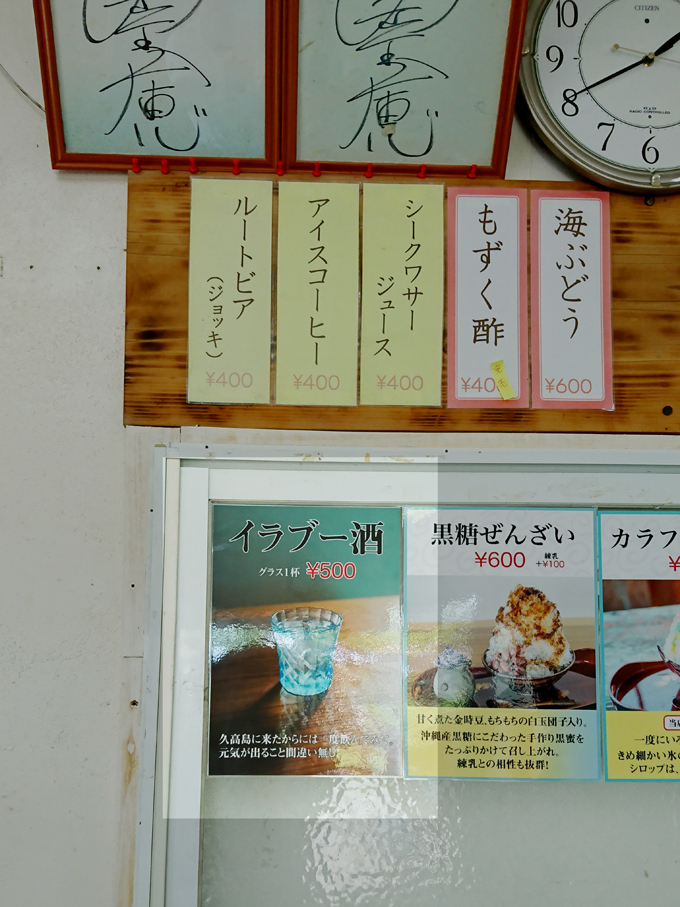 10
9
8
7
6
CITIZEN
RADIO CONTROLLED
海ぶどう
¥600
もずく酢
シークワサー
ジュース
¥400
アイスコーヒー
¥400
ルートビア
(ジョッキ)
¥400
イラブー酒
グラス1杯 ¥500
久高島に来たからには一度飲
元気が出ること間違い無し
黒糖ぜんざい
¥600 練乳 +¥100
甘く煮た金時豆、もちもちの白玉団子入り。
沖縄産黒糖にこだわった手作り黒蜜を
たっぷりかけて召し上がれ。
練乳との相性も抜群!
カラフ
一度にいろ
きめ細かい氷の
シロップは、